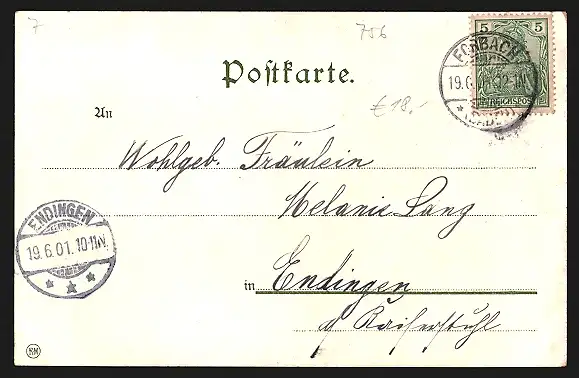 7
756
5 5
REICHSPOST
FORBACH
19.6.
(BADEN)
Postkarte.
€ 18,-
An
Wohlgeb. Fräulein
Melanie Lang
ENDINGEN
19.6.01. 10-11N.
in Endingen
a/ Kaiserstuhl
KM